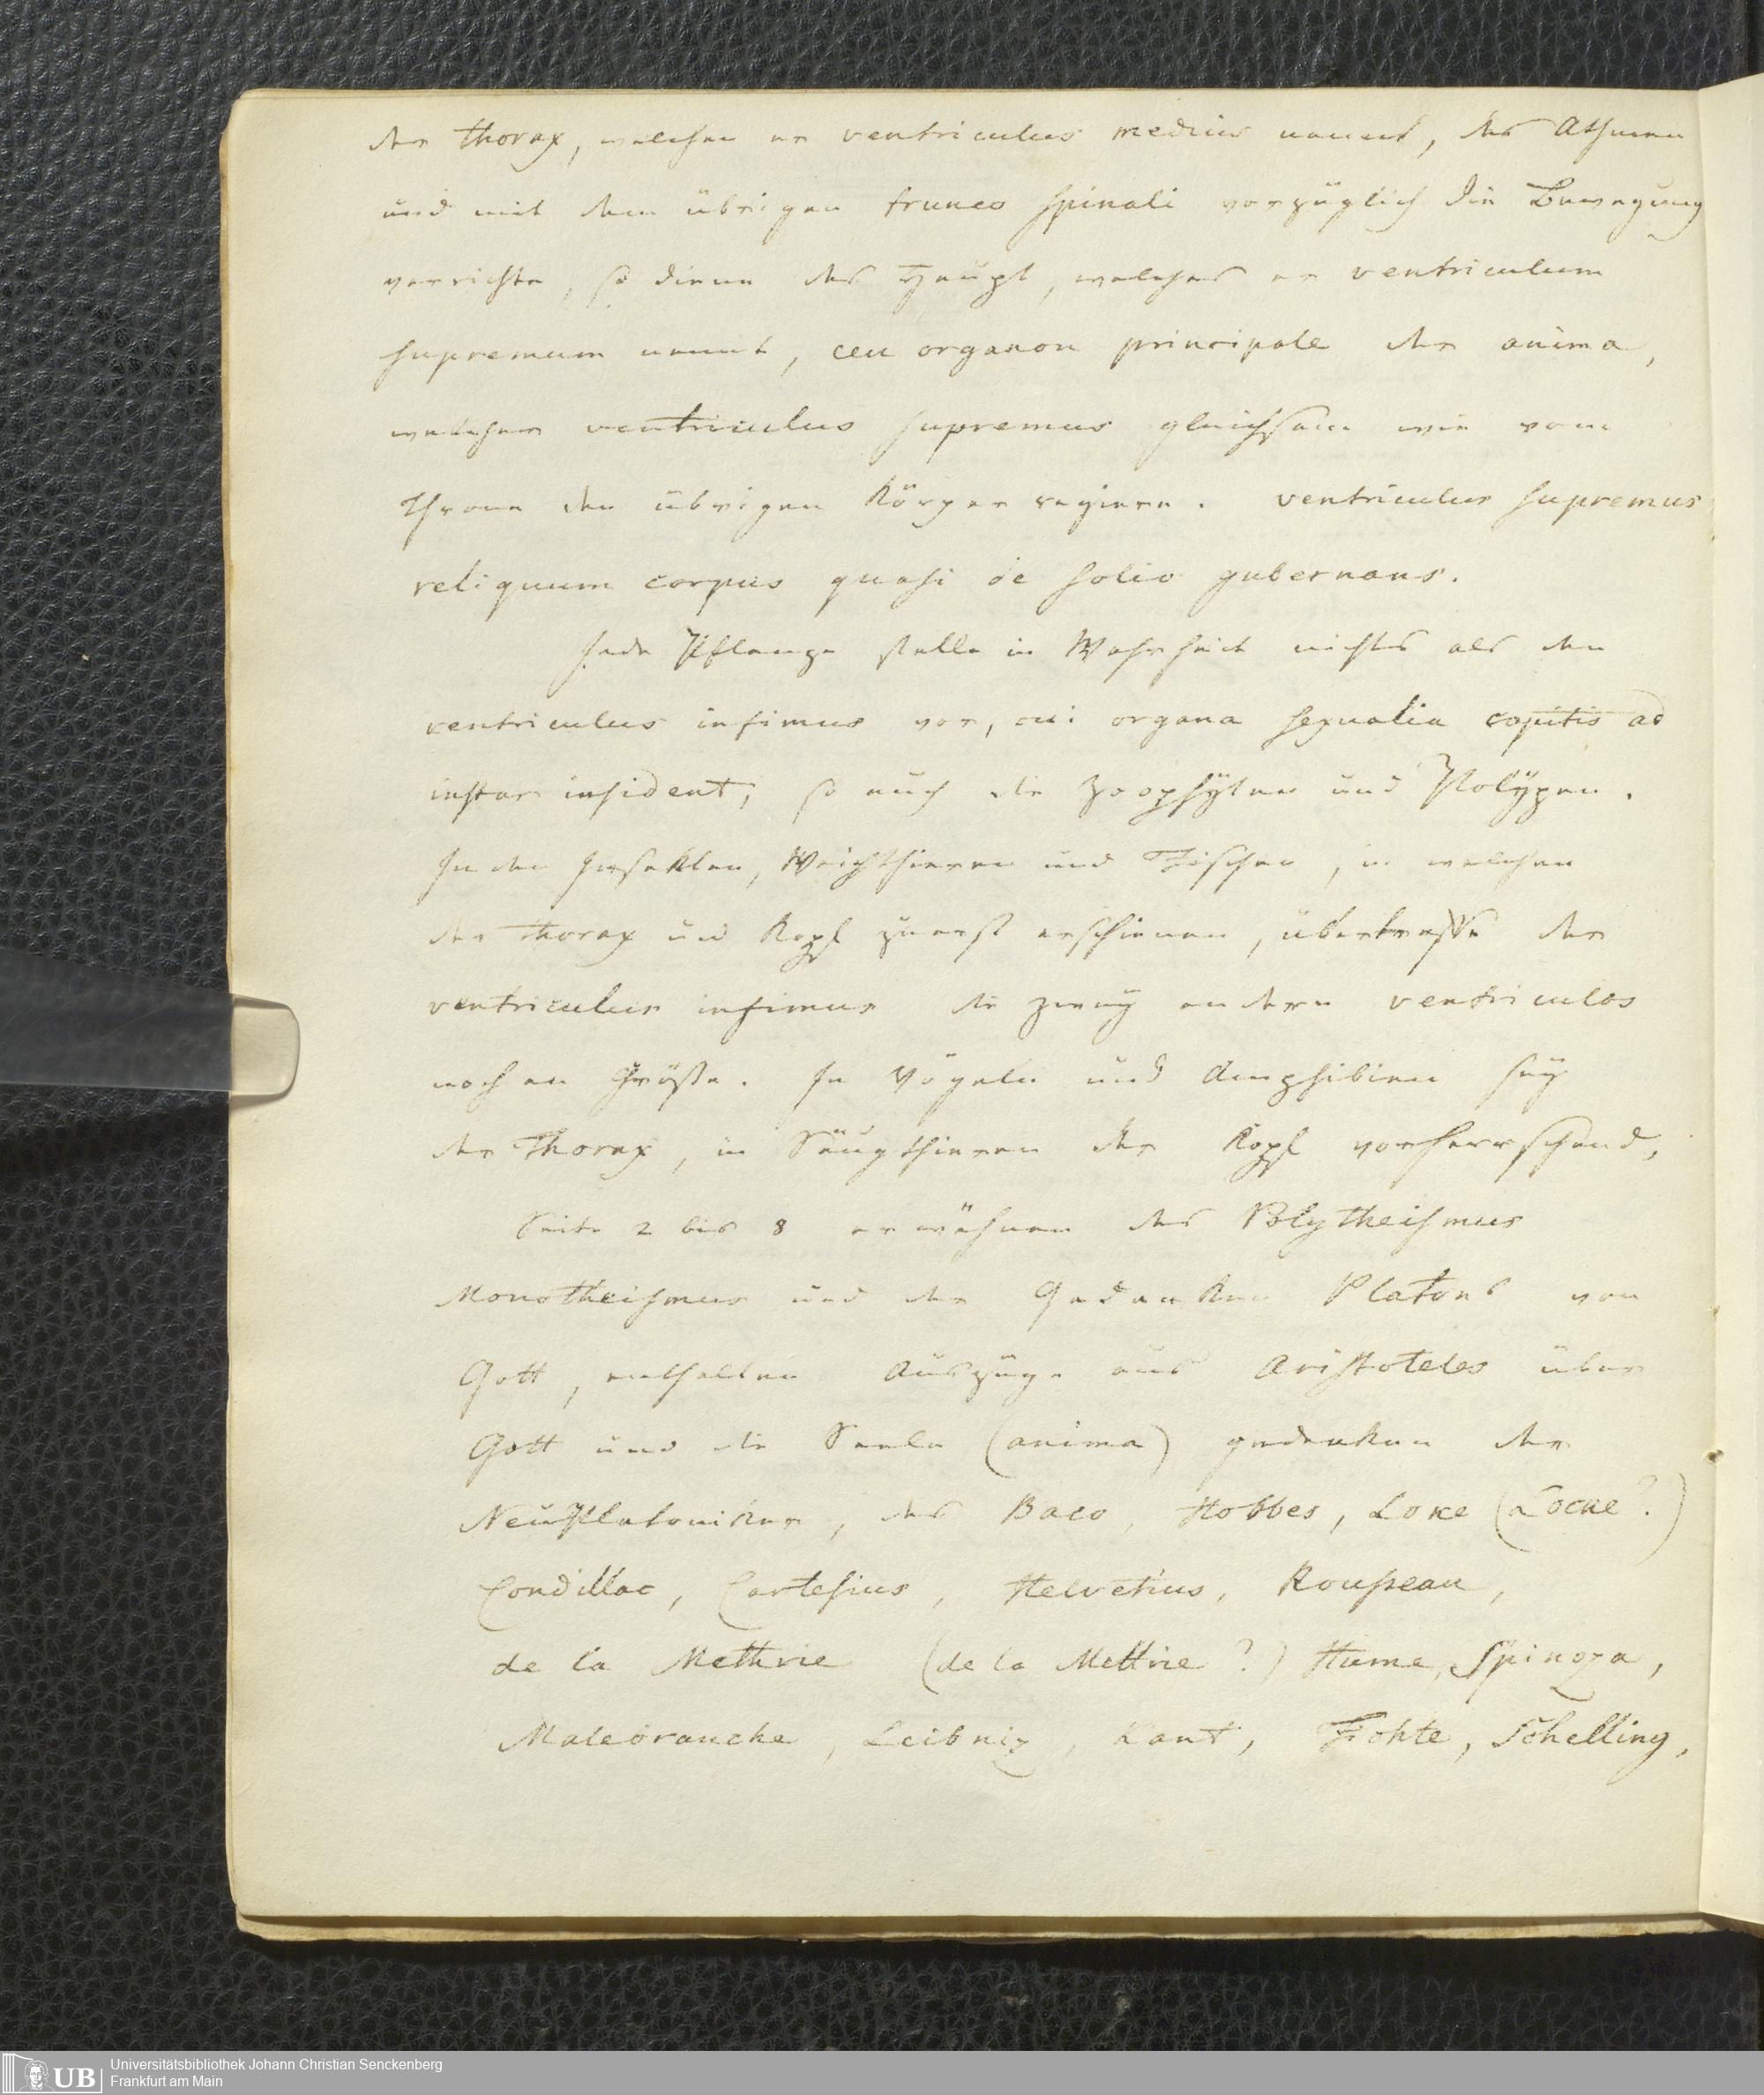 der Thorax, welchen er ventriculus medius nennt, das Athmen
und mit dem übrigen trunco spinali vorzüglich die Bewegung
verrichte, so diene das Haupt, welches er ventriculum
supremum nennt, ceu organon principale der anima,
welcher ventriculus supremus gleichsam wie vom
Throne den übrigen Körper regiere. Ventriculus supremus
reliquum corpus quasi de solio gubernans.
Jede Pflanze stelle in Wahrheit nichts als den
ventriculus infimus vor, cui organa sexualia capitis ad
instar insident; so auch die Zoophyten und Polÿpen.
In den Insekten, Weichthieren und Fischen, in welchen
der Thorax und Kopf zuerst erschienen, übertreffe der
ventriculus infimus die zweÿ andern ventriculos
noch an Größe. In Vögeln und Amphibien seÿ
der Thorax, in Säugthieren der Kopf vorherrschend,
Seite 2 bis 8 erwähnen des Polytheismus
Monotheismus und der Gedanken Platons von
Gott, enthalten Auszüge aus Aristoteles über
Gott und die Seele (anima) gedenken der
Neuplatoniker, des Baco, Hobbes, Loke (Locke?)
Condillac, Cartesius, Helvetius, Rousseau,
de la Methrie (de la Mettrie?) Hume, Spinoza,
Malebranche, Leibniz, Kant, Fichte, Schelling,
UB
Universitätsbibliothek Johann Christian Senckenberg
Frankfurt am Main